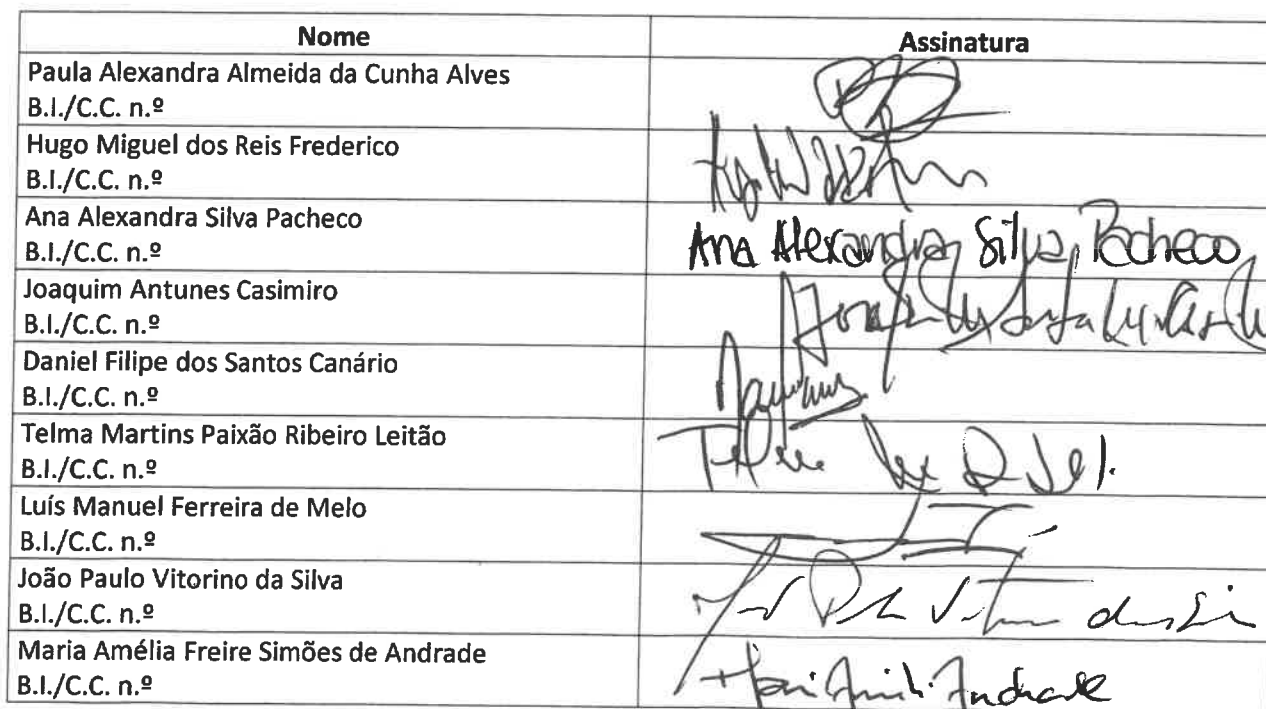 Nome Assinatura
Paula Alexandra Almeida da Cunha Alves
B.I./C.C. n.º
Hugo Miguel dos Reis Frederico
B.I./C.C. n.º
Ana Alexandra Silva Pacheco Ana Alexandra Silva Pacheco
B.I./C.C. n.º
Joaquim Antunes Casimiro
B.I./C.C. n.º
Daniel Filipe dos Santos Canário
B.I./C.C. n.º
Telma Martins Paixão Ribeiro Leitão
B.I./C.C. n.º
Luís Manuel Ferreira de Melo
B.I./C.C. n.º
João Paulo Vitorino da Silva
B.I./C.C. n.º
Maria Amélia Freire Simões de Andrade
B.I./C.C. n.º Andrade